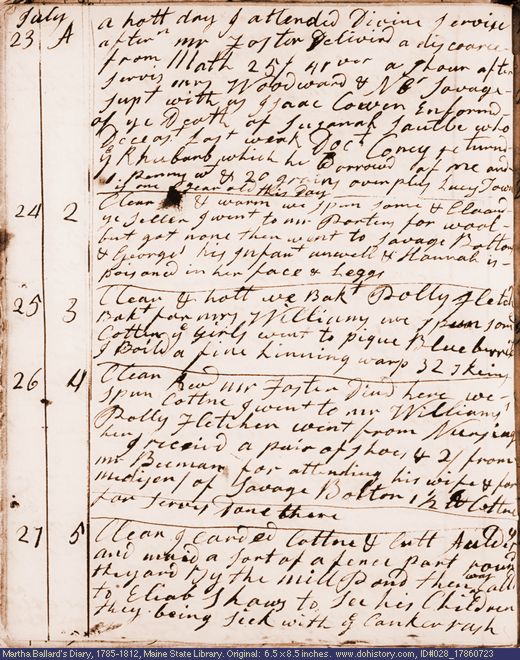 July
23 A a hott day I attended Divine Servise
aftern mr Foster Deliverd a discoarce
from Math 25th 41 ver a shour after
servis mrs Woodward & Nbr Savage
supt with us Isaac Cowen Enformd
of ye Death of Suzanah who
Deceast last week Doct Coney returnd
ye Rhubarb which he Borrowd of me and
1 penny wt & 20 grains over plus Lucy Town
is one year old this Day
24 2 Clear & warm we spun some & Cleand
ye seller I went to mr Porters for wool
but got none then went to Savage Boltons
& Georges his infant unwell & Hannah is
poisoned in her face & Leggs
25 3 Clear & hott we Bakt Polly Fletchr
Bakt for mrs Williams we spun some
Cottne ye girls went to pique Blueberries
I Boild a fine Linning warp 32 skeins
26 4 Clear Revd mr Foster Dind here we
spun Cottne I went to mr Williams
Polly Fletcher went from Nursing
her I receivd a pair of shoes & 2/ from
mr Beeman for attending his wife & for
medisen of Savage Bolton 1 1/2 lb Cottne
for servis Done there
27 5 Clear I carded Cottne & Cutt
and maid a sort of a fence part round
the yard By the mill Pond then was Calld
to Eliab Shaws to see his Children
they being seek with ye Cankerrash
Martha Ballard's Diary, 1785-1812, Maine State Library. Original: 6.5 x 8.5 inches. www.dohistory.com, ID#028_17860723